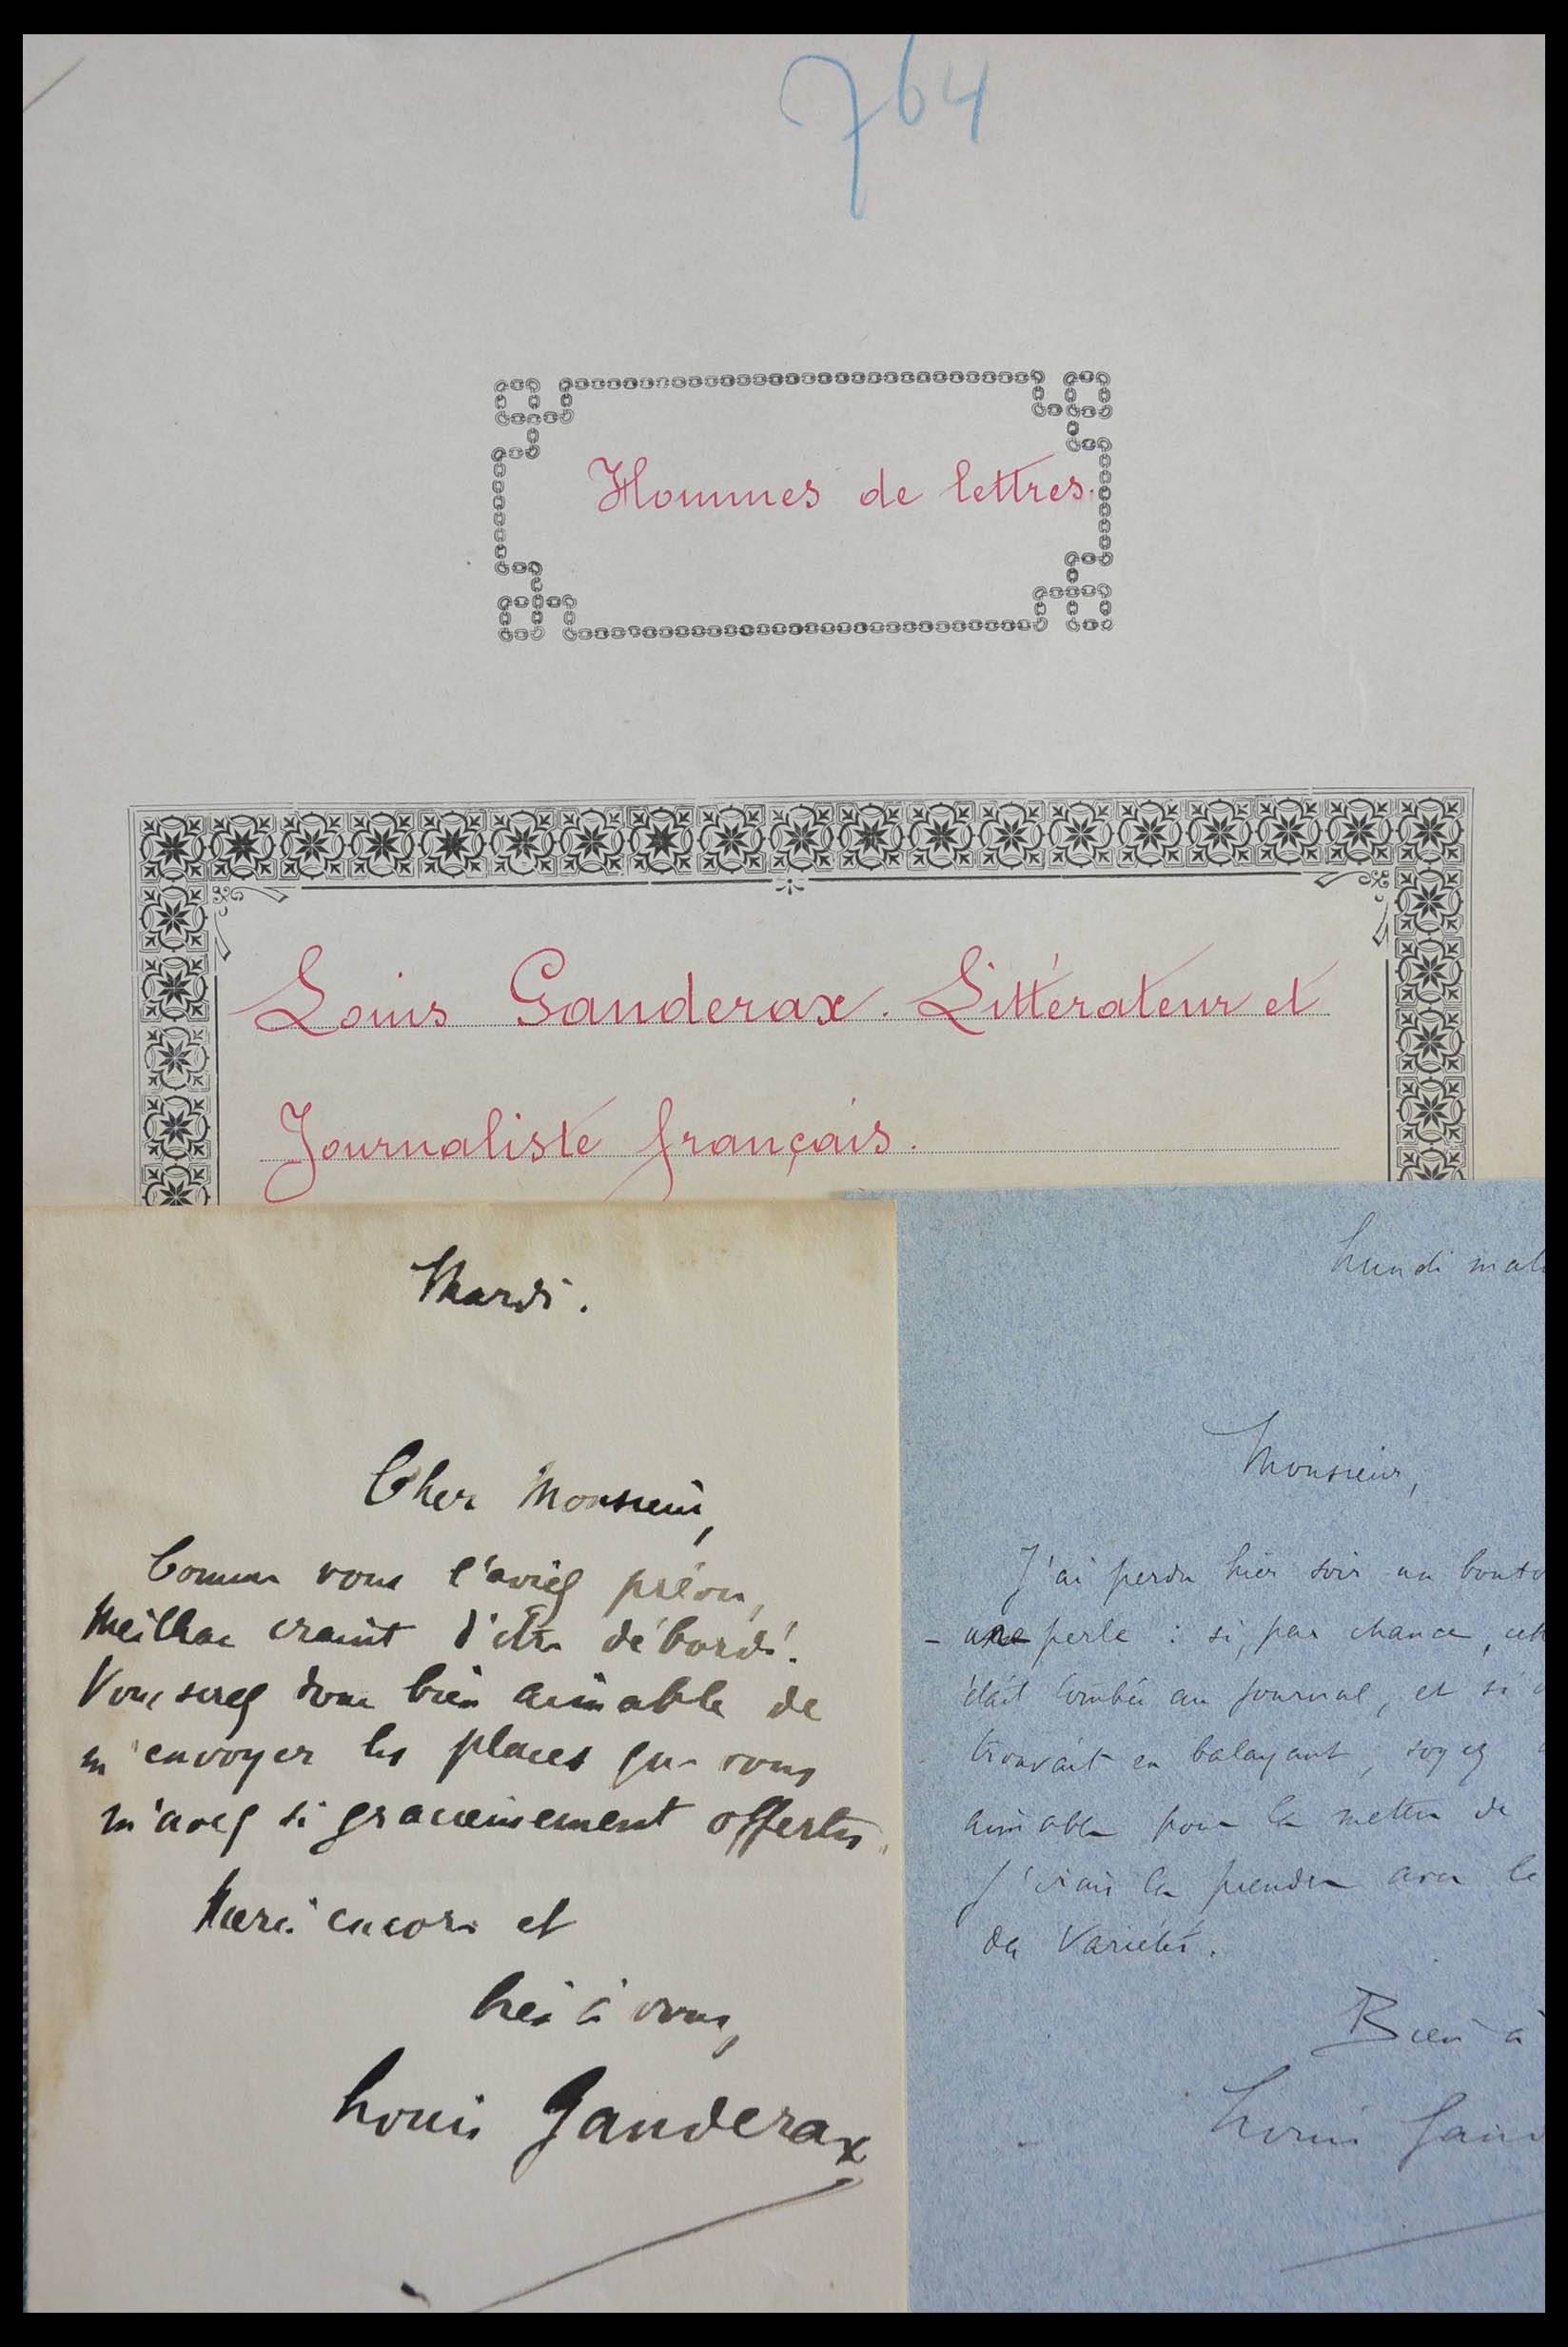 764
Hommes de lettres.
Louis Ganderax. Littérateur et
Journaliste français.
Mardi.
Cher Monsieur,
Comme vous l'aviez prévu,
Meilhac craint d'être débordé!
Vous serez donc bien aimable de
m'envoyer les places que vous
m'avez si gracieusement offertes.
Merci encore et
bien à vous,
Louis Ganderax
Lundi mat
Monsieur,
J'ai perdu hier soir un bouto
- une perle : si, par chance, cet
était tombée au journal, et si
trouvait en balayant, soyez
aimable pour la mettre de
J'irais la prendre avec le
des Variétés.
Bien à
Louis Gand